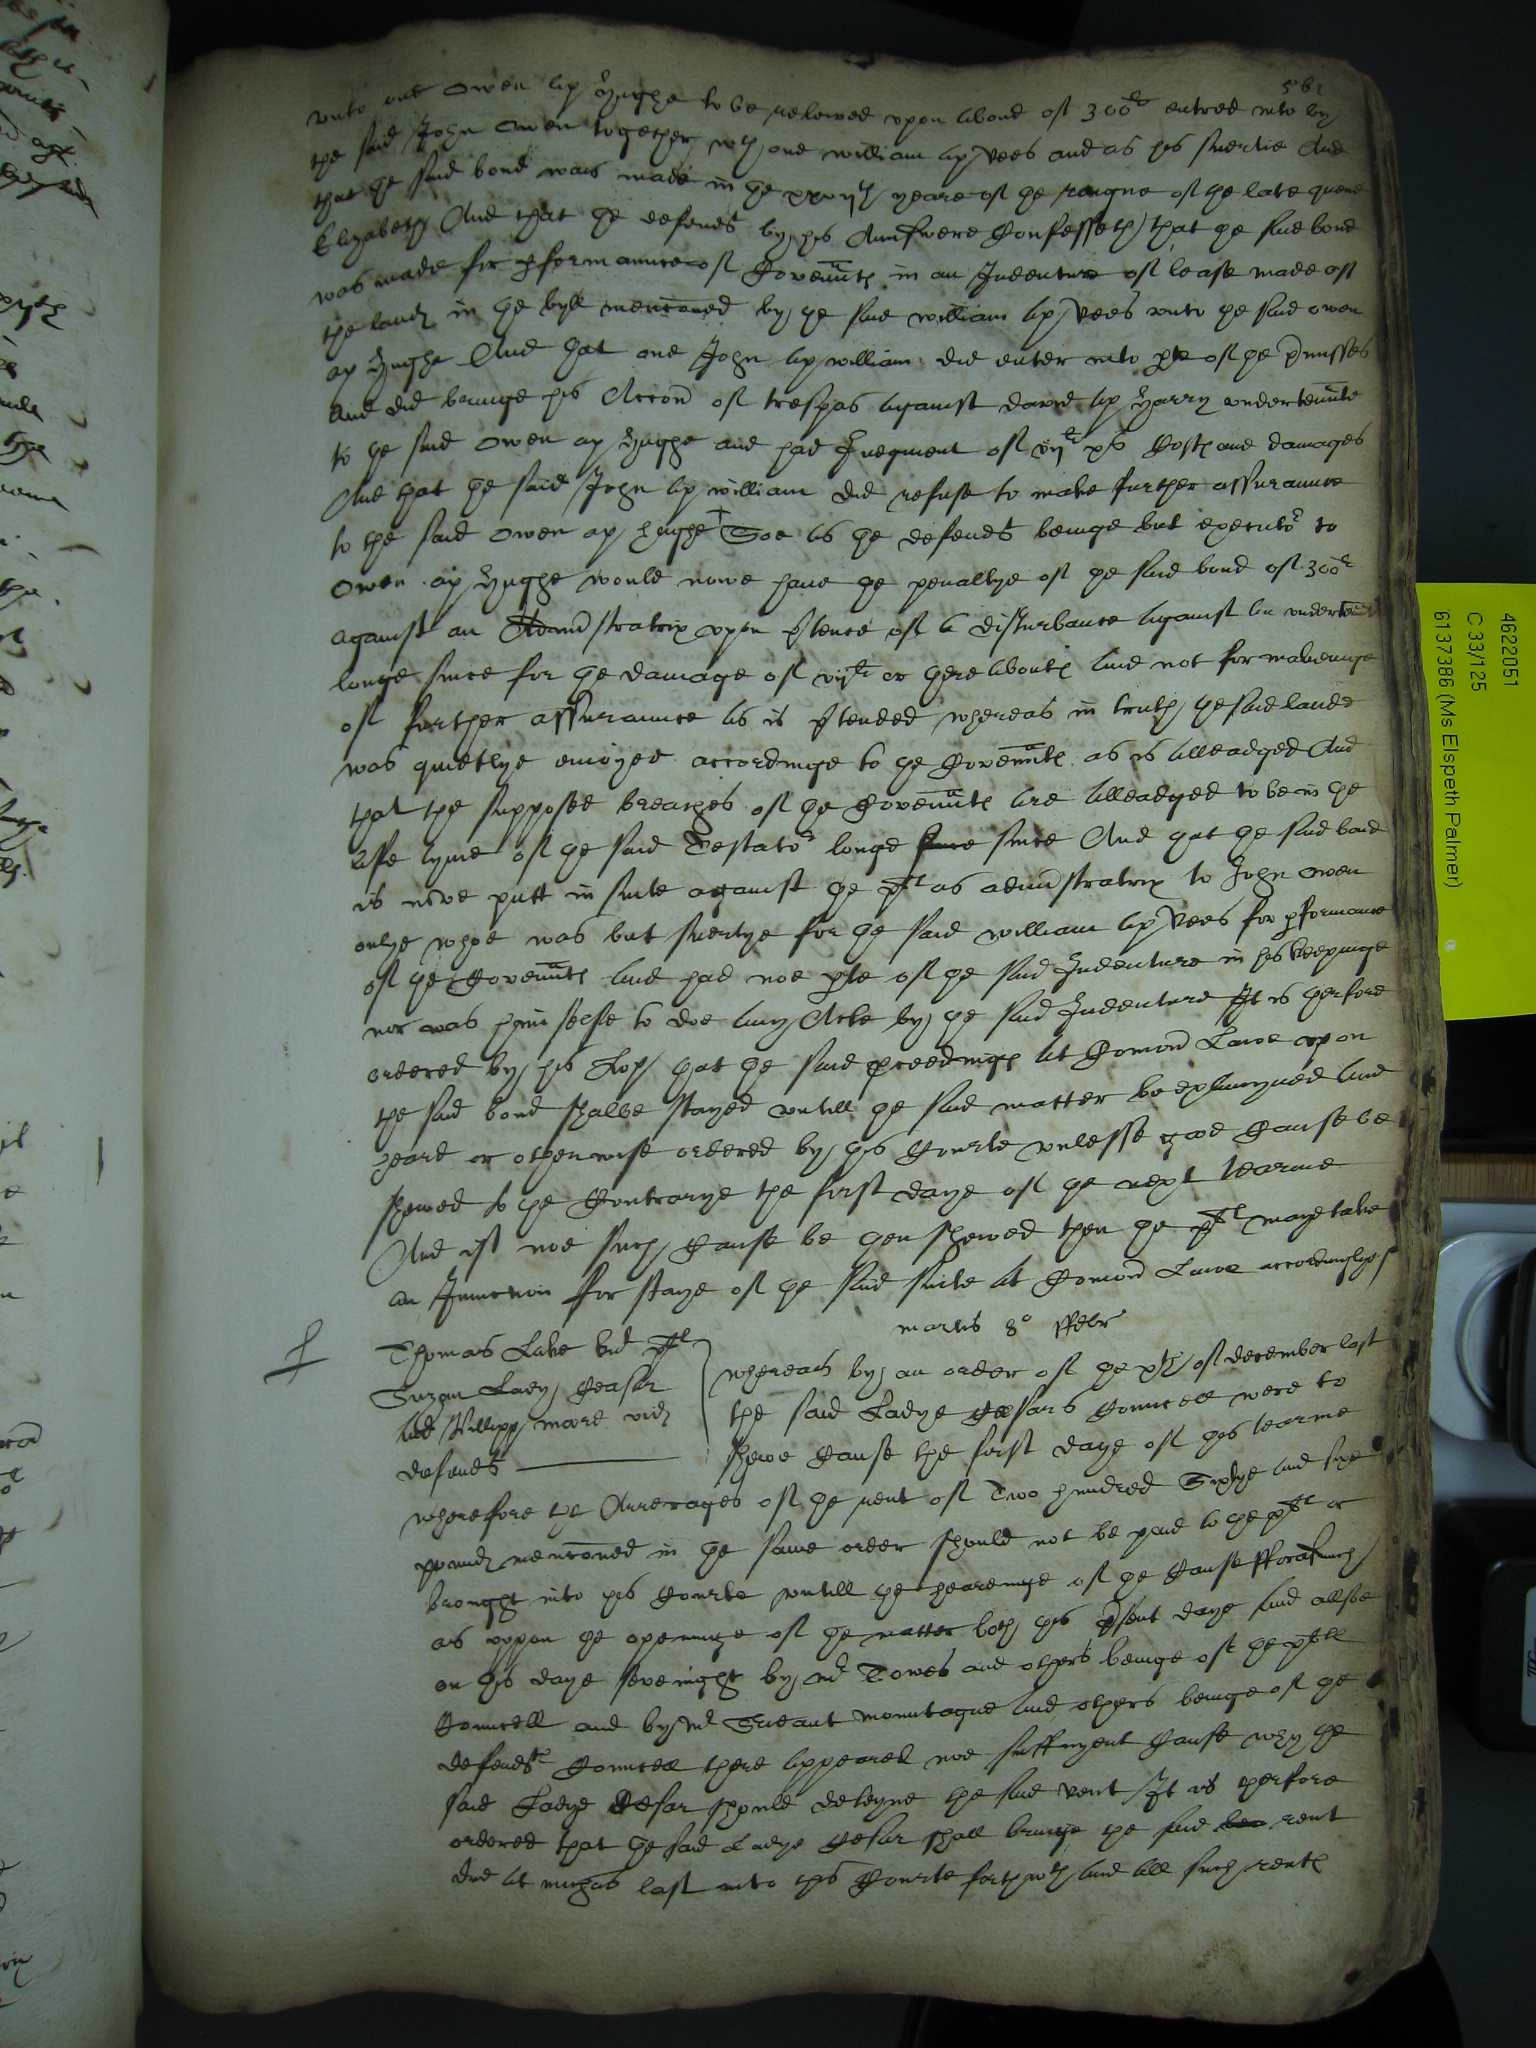 561
vnto one Owen ap Hughe to be releived vpon a bond of 300li entred into by
the said John Owen together wth one william ap Rees and as his suertie And
that the said bond was made in the xxxvijth yeare of the raigne of the late quene
Elizabeth And that the defendt by his Aunswere Confesseth that the said bond
was made for pformaunce of Covennts in an Indenture of lease made of
the lands in the byll menconed by the said william ap Rees vnto the said owen
ap Hughe And that one John ap william did enter into pte of the pmisses
And did bringe his Accon of trespas against david ap Harry vndertennte
to the said Owen ap Hughe and had Iudgment of vijli xs Costs and damages
And that the said John ap william did refuse to make further assuraunce
to the said Owen ap hughe Soe as the defendt beinge but executor to
Owen ap Hughe would nowe haue the penaltye of the said bond of 300li
against an Admstratrix vpon ptence of a disturbance against an vndertennt
longe since for the damage of vijli or thereabouts And not for makeinge
of further assuraunce as is ptended whereas in truth the said lands
was quietlye enioyed accordinge to the Covennts as is alleadged And
that the supposed breaches of the Covennts are alleadged to be in the
life tyme of the said Testator longe since And that the said bond
is nowe putt in suite against the plt as admstratrix to John Owen
onlye whoe was but suertye for the said william ap Rees for pformance
of the Covennts And had noe pte of the said Indenture in his keepinge
nor was himselfe to doe any Acte by the said Indenture It is therfore
ordered by his Lop that the said pceedings at Comon Lawe vpon
the said bond shalbe stayed vntill the said matter be examyned and
heard or otherwise ordered by this Courte vnlesse good Cause be
shewed to the Contrarye the first daye of the next tearme
And if noe such Cause be then shewed then the plt maye take
an Iniunccon for staye of the said suite at Comon Lawe accordinglye
martis 8o ffebr
Thomas Lake plt
Suzan Lady Ceasar
And Phillipp moore vid
defendts
whereas by an order of the xth of december last
the said Ladye Cesars Councell were to
shewe Cause the first daye of this tearme
wherefore the Arrerages of the rent of Two hundred Sixtye and sixe
pounds menconed in the same order should not be paid to the plt or
brought into this Courte vntill the heareinge of the Cause fforasmuch
as vppon the openinge of the matter both this psent daye And allsoe
on this daye sevenight by mr Towes and others beinge of the plts
Councell and by mr Srieant mountague and others beinge of the
defendts Councell there appeared noe suffycyent Cause why the
said Ladye Cesar should deteyne the said rent It is therfore
ordered that the said Ladye Cesar shall bringe the said rent
due at michas last into this Courte forthwth And all such rents
4622051
C 33/125
6137386 (Ms Elspeth Palmer)